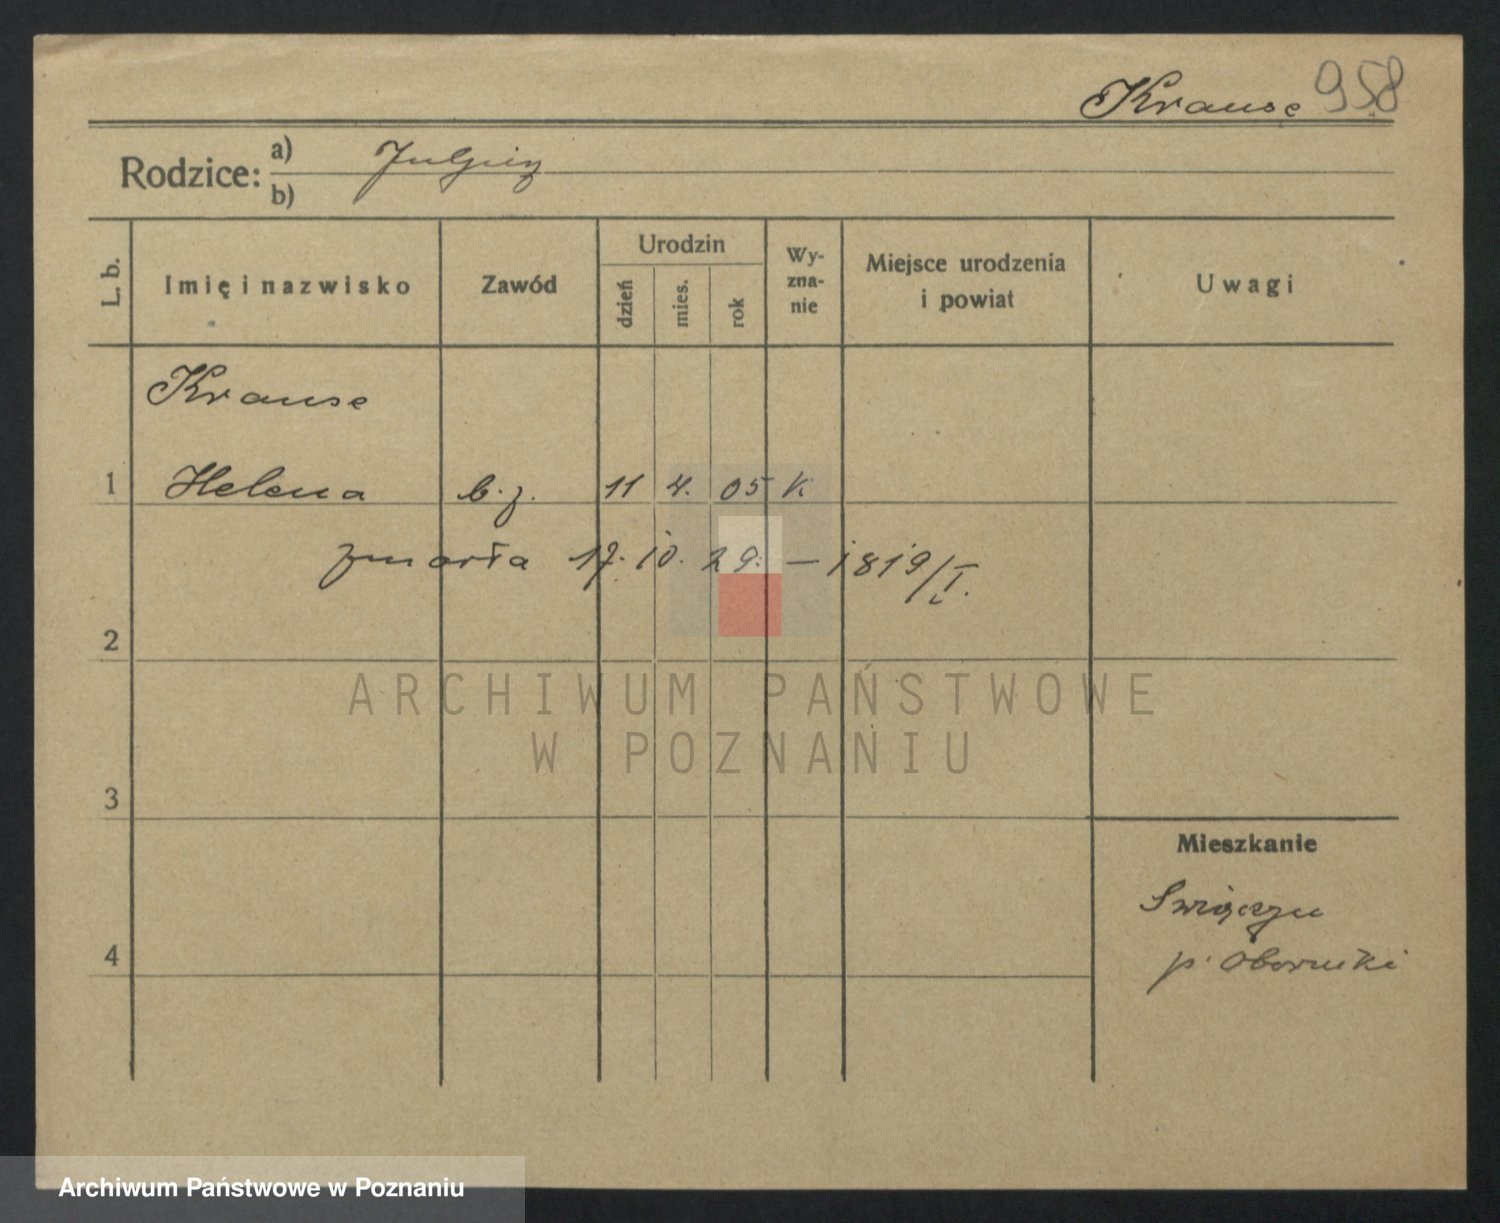 Krause 958
Rodzice: a)
b)
L. b.
Imię i nazwisko
Zawód
Urodzin
dzień
mies.
rok
Wy-
zna-
nie
Miejsce urodzenia
i powiat
Uwagi
Krause
1 Helena b. z. 11 4. 05 K
zmarła 17. 10. 29. – 1819/I.
2
ARCHIWUM PAŃSTWOWE
W POZNANIU
3
Mieszkanie
4
p. Oborniki
Archiwum Państwowe w Poznaniu